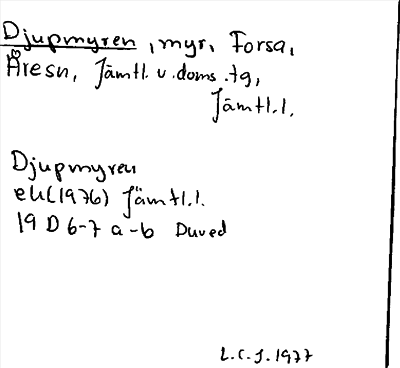 Djupmyren, myr, Forsa,
Åresn, Jämtl. v. doms. tg,
Jämtl. l.
Djupmyren
ek (1976) Jämtl. l.
19 D 6-7 a-b Duved
L.C.J. 1977